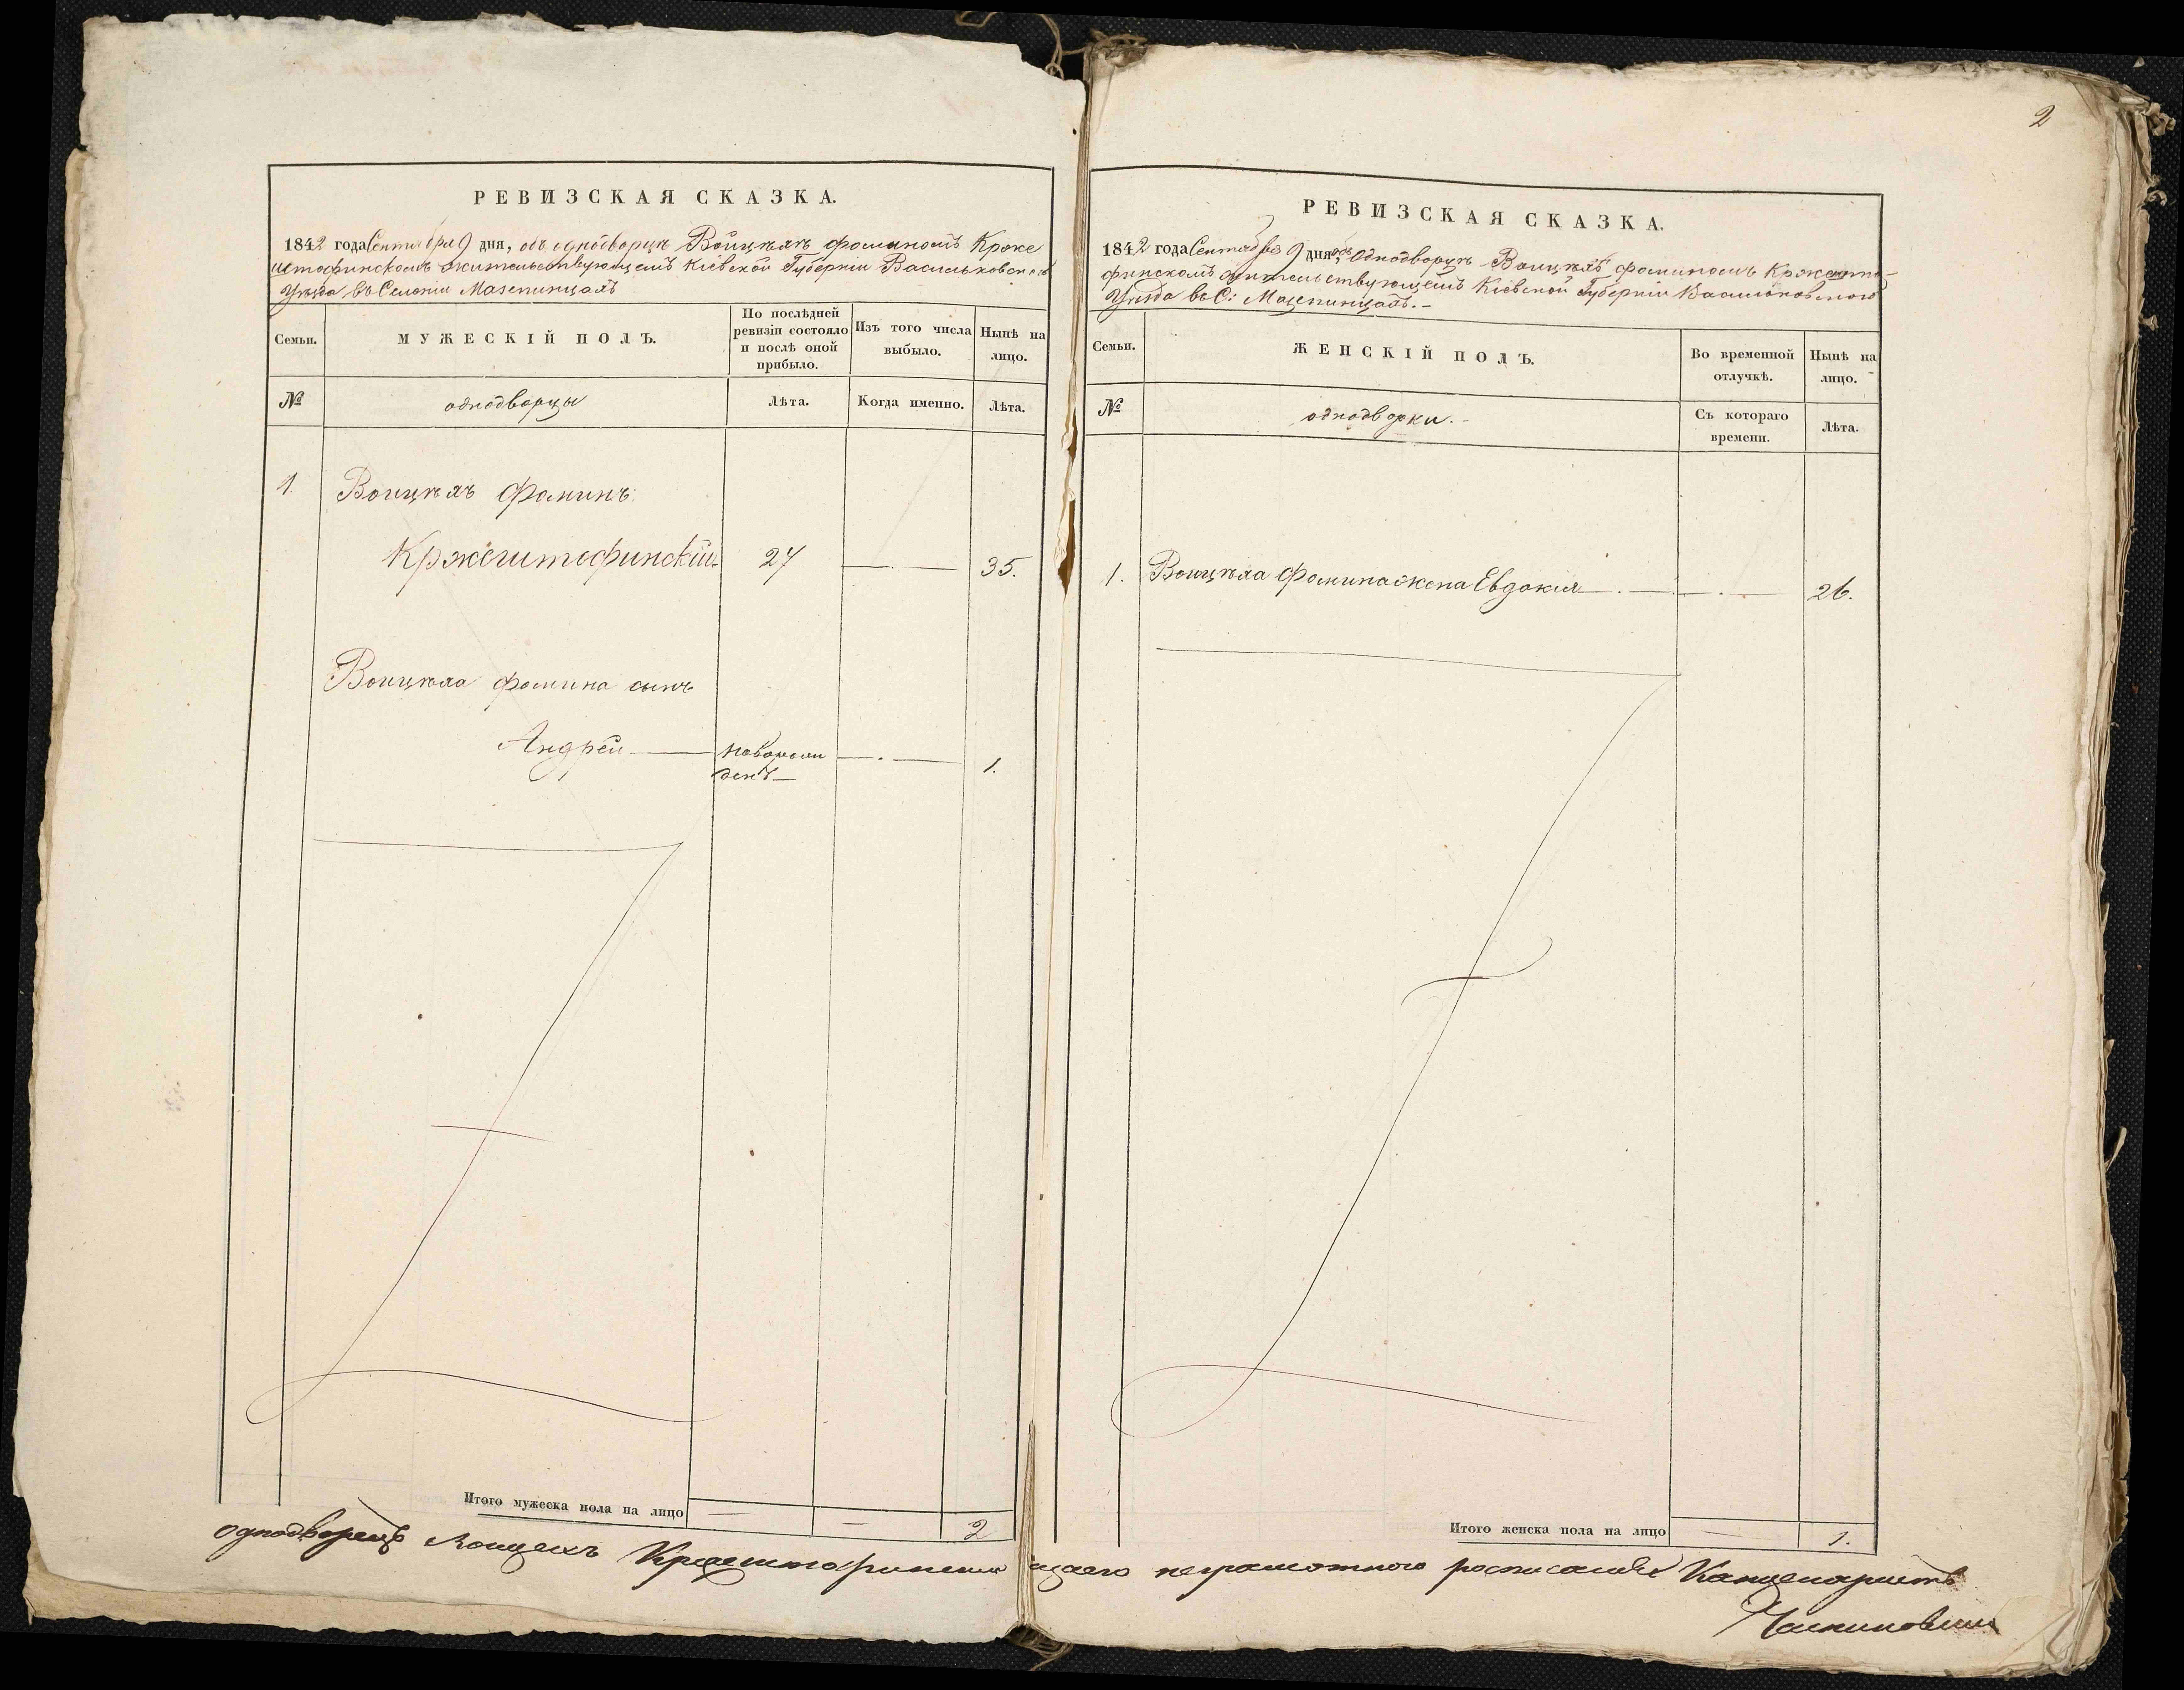 2
РЕВИЗСКАЯ СКАЗКА.
1842 года Сентября 9 дня, объ однодворцѣ Войцѣхѣ Фоминомъ Крже
штофинскомъ жительствующемъ Кіевской Губерніи Васильковскаго
Уѣзда въ Селеніи Мазепинцахъ
Семьи.
МУЖЕСКІЙ ПОЛЪ.
По послѣдней ревизіи состояло и послѣ оной прибыло.
Изъ того числа выбыло.
Нынѣ на лицо.
№
однодворцы
Лѣта.
Когда именно.
Лѣта.
1. Войцѣхъ Фоминъ
Кржештофинскій 27 — 35.
Войцѣха Фомина сынъ
Андрей — новорож
денъ — . — 1.
Итого мужеска пола на лицо — — 2
РЕВИЗСКАЯ СКАЗКА.
1842 года Сентября 9 дня, объ Однодворцѣ Войцѣхѣ Фоминомъ Кржешто-
финскомъ жительствующемъ Кіевской Губерніи Васильковского
Уѣзда въ С: Мазепинцахъ. -
Семьи.
ЖЕНСКІЙ ПОЛЪ.
Во временной отлучкѣ.
Нынѣ на лицо.
№
однодворки. -
Съ котораго времени.
Лѣта.
1. Войцѣха Фомина жена Евдокія — . — — . — 26.
Итого женска пола на лицо — 1.
однодворецъ Войцехъ Кржештофинскій неграмотного росписался Канцеляристъ